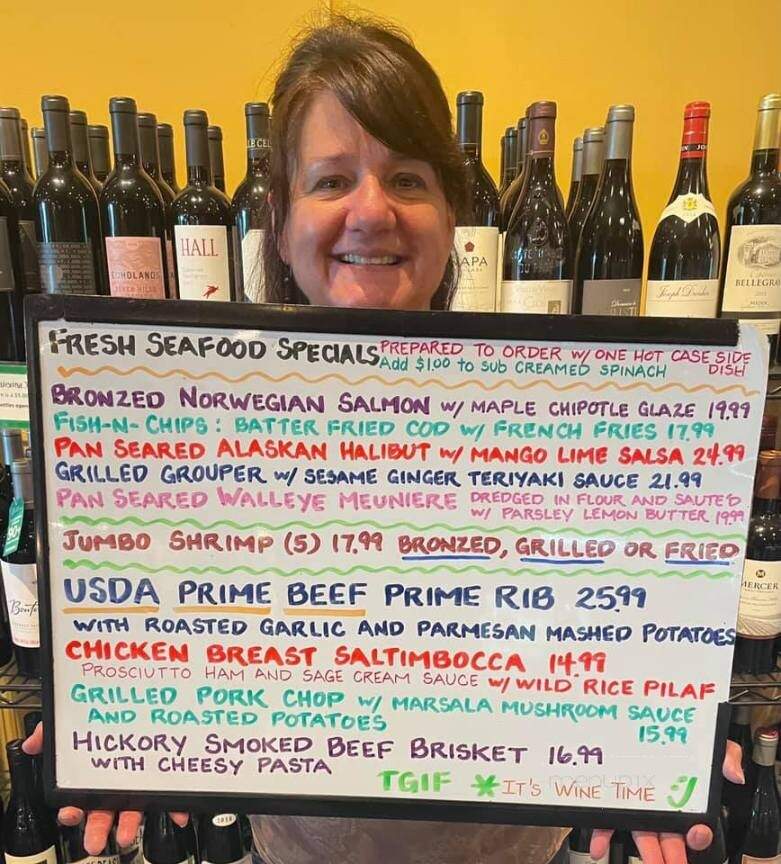 FRESH SEAFOOD SPECIALS PREPARED TO ORDER W/ ONE HOT CASE SIDE DISH
Add $1.00 to SUB CREAMED SPINACH
BRONZED NORWEGIAN SALMON W/ MAPLE CHIPOTLE GLAZE 19.99
FISH-N-CHIPS: BATTER FRIED COD W/ FRENCH FRIES 17.99
PAN SEARED ALASKAN HALIBUT W/ MANGO LIME SALSA 24.99
GRILLED GROUPER W/ SESAME GINGER TERIYAKI SAUCE 21.99
PAN SEARED WALLEYE MEUNIERE DREDGED IN FLOUR AND SAUTE'D
W/ PARSLEY LEMON BUTTER 19.99
JUMBO SHRIMP (5) 17.99 BRONZED, GRILLED OR FRIED
USDA PRIME BEEF PRIME RIB 25.99
WITH ROASTED GARLIC AND PARMESAN MASHED POTATOES
CHICKEN BREAST SALTIMBOCCA 14.99
PROSCIUTTO HAM AND SAGE CREAM SAUCE W/ WILD RICE PILAF
GRILLED PORK CHOP W/ MARSALA MUSHROOM SAUCE
AND ROASTED POTATOES 15.99
HICKORY SMOKED BEEF BRISKET 16.99
WITH CHEESY PASTA
TGIF * IT'S WINE TIME :)
HALL
Joseph Drouhin
BELLEGR
MERCER